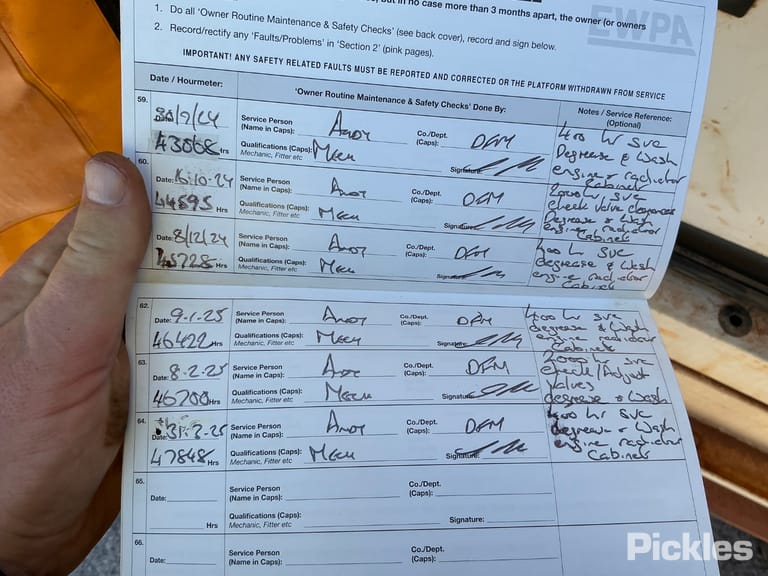 but in no case more than 3 months apart, the owner (or owners
1. Do all 'Owner Routine Maintenance & Safety Checks' (see back cover), record and sign below.
2. Record/rectify any 'Faults/Problems' in 'Section 2' (pink pages).
EWPA
IMPORTANT! ANY SAFETY RELATED FAULTS MUST BE REPORTED AND CORRECTED OR THE PLATFORM WITHDRAWN FROM SERVICE
Date / Hourmeter:
'Owner Routine Maintenance & Safety Checks' Done By:
Notes / Service Reference:
(Optional)
59.
/9/24
43068 Hrs
Service Person
(Name in Caps): Andy
Co./Dept.
(Caps): DFM
Qualifications (Caps): Mech
Mechanic, Fitter etc
Signature:
400 hr svc
Degrease & Wash
engine radiator
Cabinet
60.
Date: 10-24
Hrs
Service Person
(Name in Caps): Andy
Co./Dept.
(Caps): DFM
Qualifications (Caps): Mech
Mechanic, Fitter etc
Signature:
2000 hr svc
check valve clearances
Degrease & Wash
engine radiator
Cabinet
Date: 8/12/24
45728 Hrs
Service Person
(Name in Caps): Andy
Co./Dept.
(Caps): DFM
Qualifications (Caps): Mech
Mechanic, Fitter etc
Signature:
400 hr svc
degrease & Wash
engine radiator
Cabinet
62.
Date: 9.1.25
46422 Hrs
Service Person
(Name in Caps): Andy
Co./Dept.
(Caps): DFM
Qualifications (Caps): Mech
Mechanic, Fitter etc
Signature:
400 hr svc
degrease & Wash
engine radiator
Cabinet
63.
Date: 8.2.25
46700 Hrs
Service Person
(Name in Caps): Andy
Co./Dept.
(Caps): DFM
Qualifications (Caps): Mech
Mechanic, Fitter etc
Signature:
2000 hr svc
check/Adjust
Valves
degrease & Wash
64.
Date: 31.3.25
47848 Hrs
Service Person
(Name in Caps): Andy
Co./Dept.
(Caps): DFM
Qualifications (Caps): Mech
Mechanic, Fitter etc
Signature:
400 hr svc
degrease & Wash
engine radiator
Cabinet
65.
Date:
Hrs
Service Person
(Name in Caps):
Co./Dept.
(Caps):
Qualifications (Caps):
Mechanic, Fitter etc
Signature:
66.
Date:
Service Person
(Name in Caps):
Co./Dept.
(Caps):
Pickles